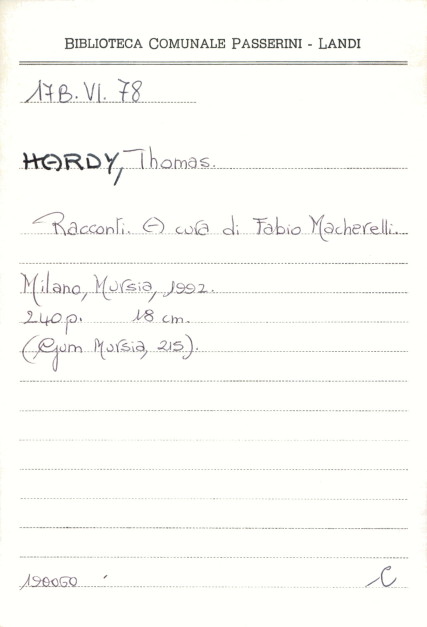 BIBLIOTECA COMUNALE PASSERINI - LANDI
17B. VI. 78
HARDY, Thomas.
Racconti. A cura di Fabio Macherelli.
Milano, Mursia, 1992.
240 p. 18 cm.
(Gum Mursia, 215).
190060 C